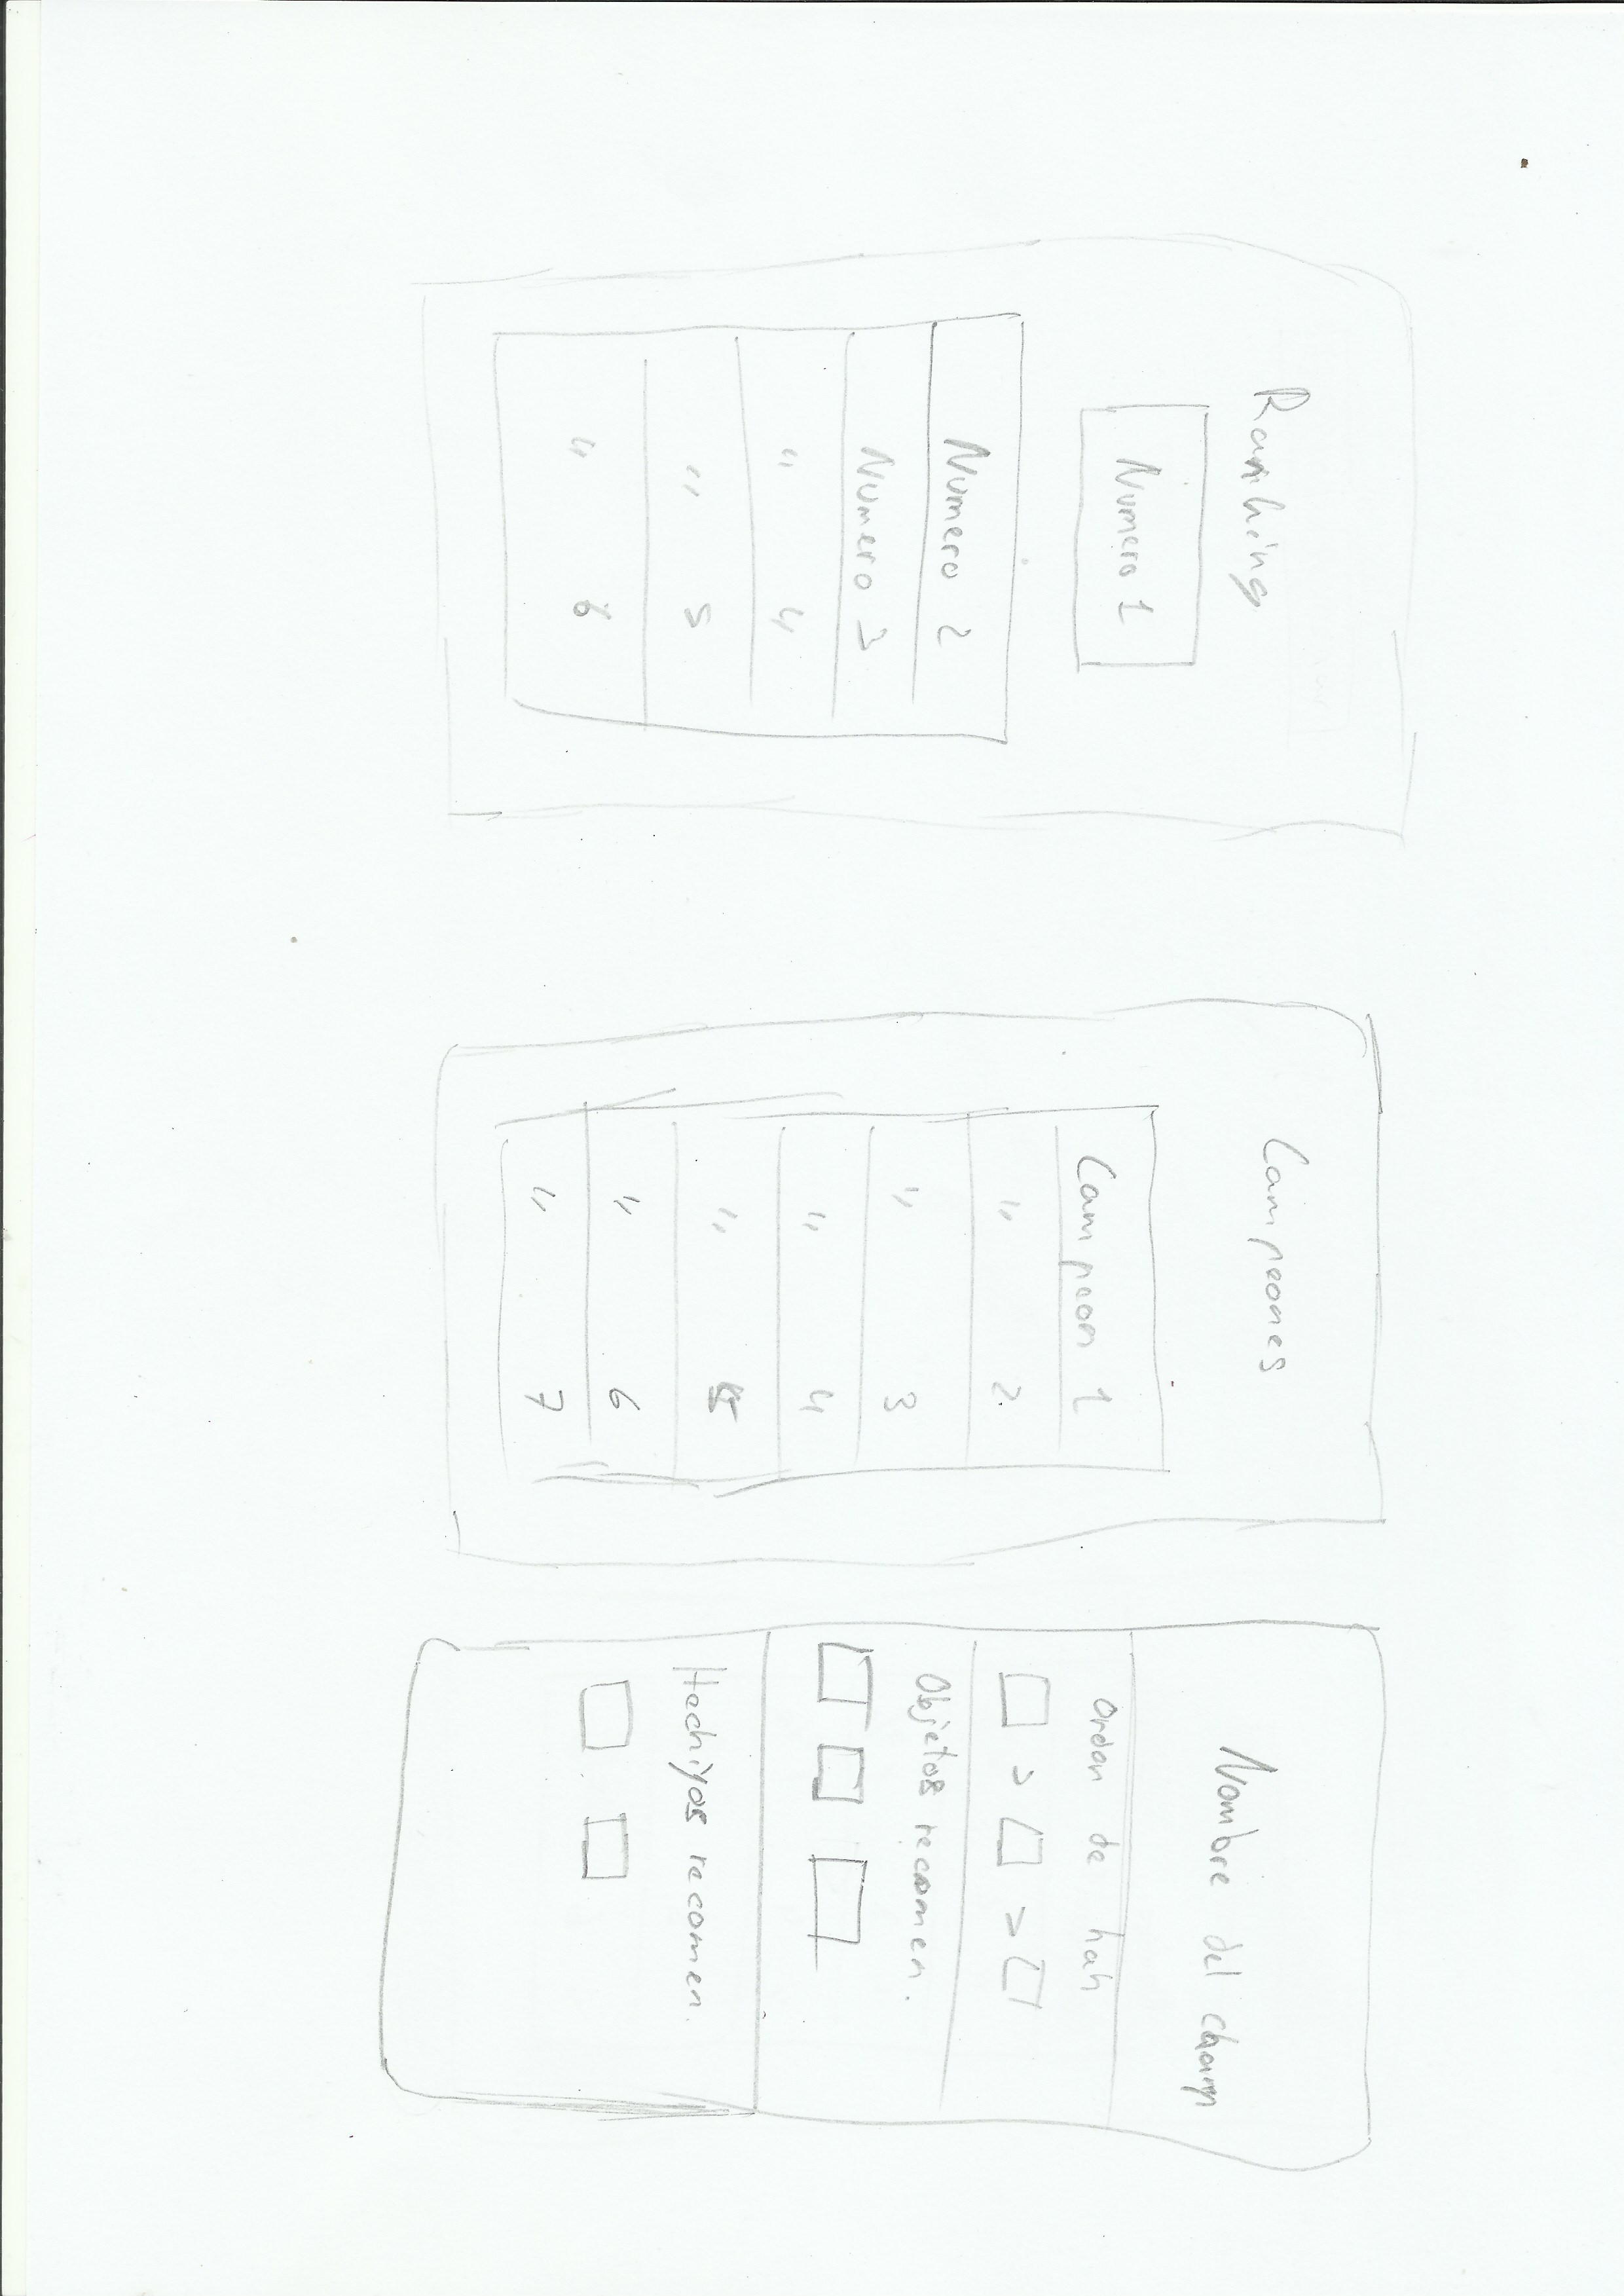 Ranking
Numero 1
Numero 2
Numero 3
" 4
" 5
" 6
Campeones
Campeon 1
" 2
" 3
" 4
" 5
" 6
" 7
Nombre del champ
Orden de hab
> >
Objetos recomen.
Hechizos recomen.